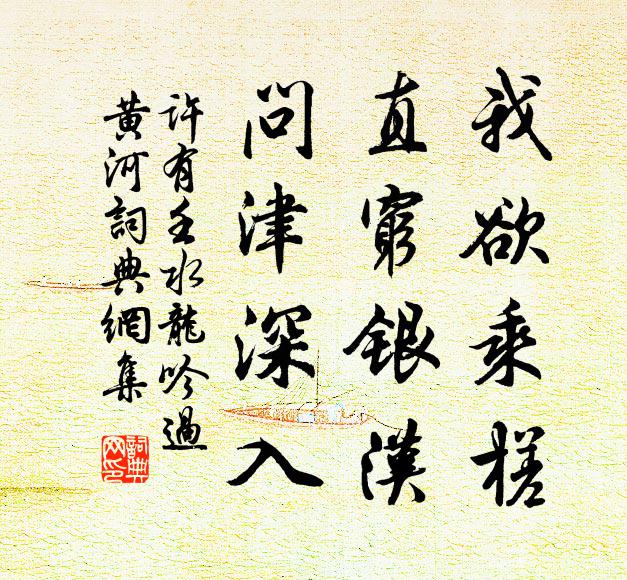 我欲乘槎
直窮銀漢
問津深入
許有壬水龍吟過
黃河詞典網集
詞典网印